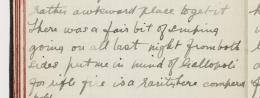 rather awkward place to get it
there was a fair bit of sniping
going on all last night from both
sides put me in mind of Gallopoli
for rifle fire is a rarity here compera